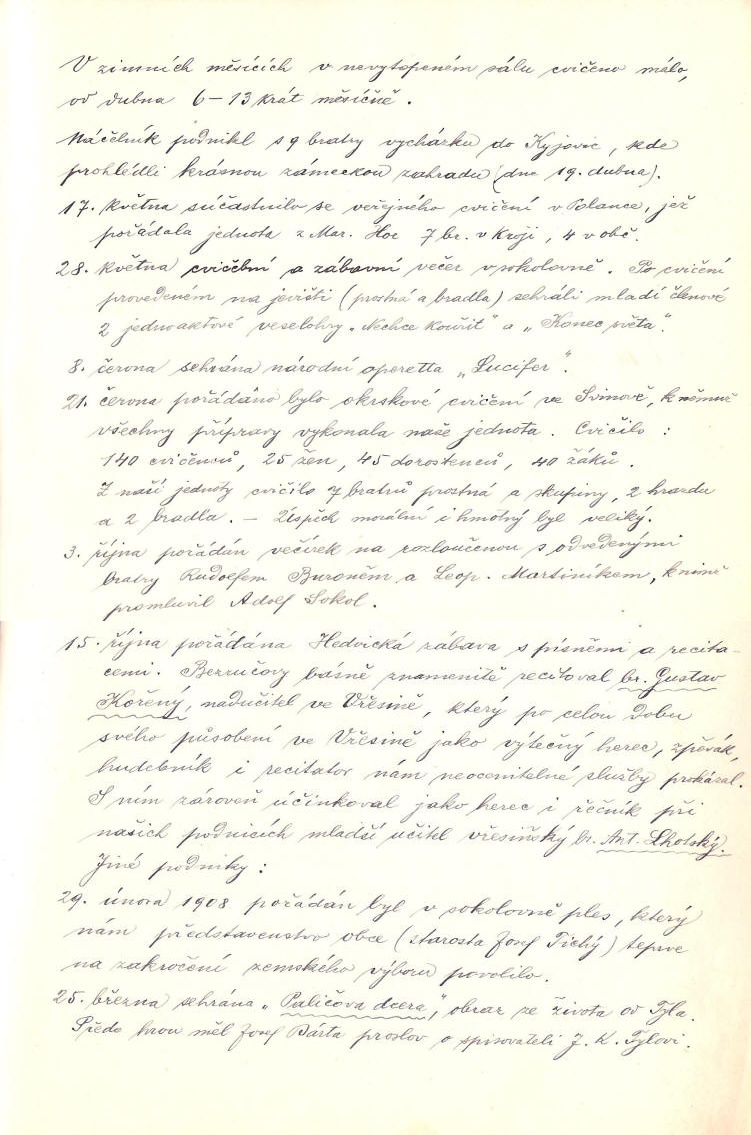 V zimních měsících v nevytopeném sálu cvičeno málo,
od dubna 6–13 krát měsíčně.
Náčelník podnikl s 9 bratry vycházku do Kyjovic, kde
prohlédli krásnou zámeckou zahradu (dne 19. dubna).
17. května súčastnilo se veřejného cvičení v Polance, jež
pořádala jednota z Mar. Hor 7 br. v kroji, 4 v obč.
28. května cvičební a zábavní večer v sokolovně. Po cvičení
provedeném na jevišti (prostná a bradla) sehráli mladí členové
2 jednoaktové veselohry „Nechce kouřit“ a „Konec světa“.
8. června sehrána národní operetta „Lucifer“.
21. června pořádáno bylo okrskové cvičení ve Svinově, k němuž
všechny přípravy vykonala naše jednota. Cvičilo :
140 cvičenců, 25 žen, 45 dorostenců, 40 žáků.
Z naší jednoty cvičilo 7 bratrů prostná a skupiny, 2 hrazdu
a 2 bradla. — Úspěch morální i hmotný byl veliký.
3. října pořádán večírek na rozloučenou s odvedenými
bratry Rudolfem Buroněm a Leop. Martiníkem, k nimž
promluvil Adolf Sokol.
15. října pořádána Hedvická zábava s písněmi a recita-
cemi. Bezručovy básně znamenitě recitoval br. Gustav
Kořený, nadučitel ve Vřesině, který po celou dobu
svého působení ve Vřesině jako výtečný herec, zpěvák,
hudebník i recitator nám neocenitelné služby prokázal.
S ním zároveň účinkoval jako herec i řečník při
našich podnicích mladší učitel vřesinský br. Ant. Lhotský.
Jiné podniky :
29. února 1908 pořádán byl v sokolovně ples, který
nám představenstvo obce (starosta Josef Tichý) teprve
na zakročení zemského výboru povolilo.
25. března sehrána „Paličova dcera“, obraz ze života od Tyla.
Přede hrou měl Josef Bárta proslov o spisovateli J. K. Tylovi.